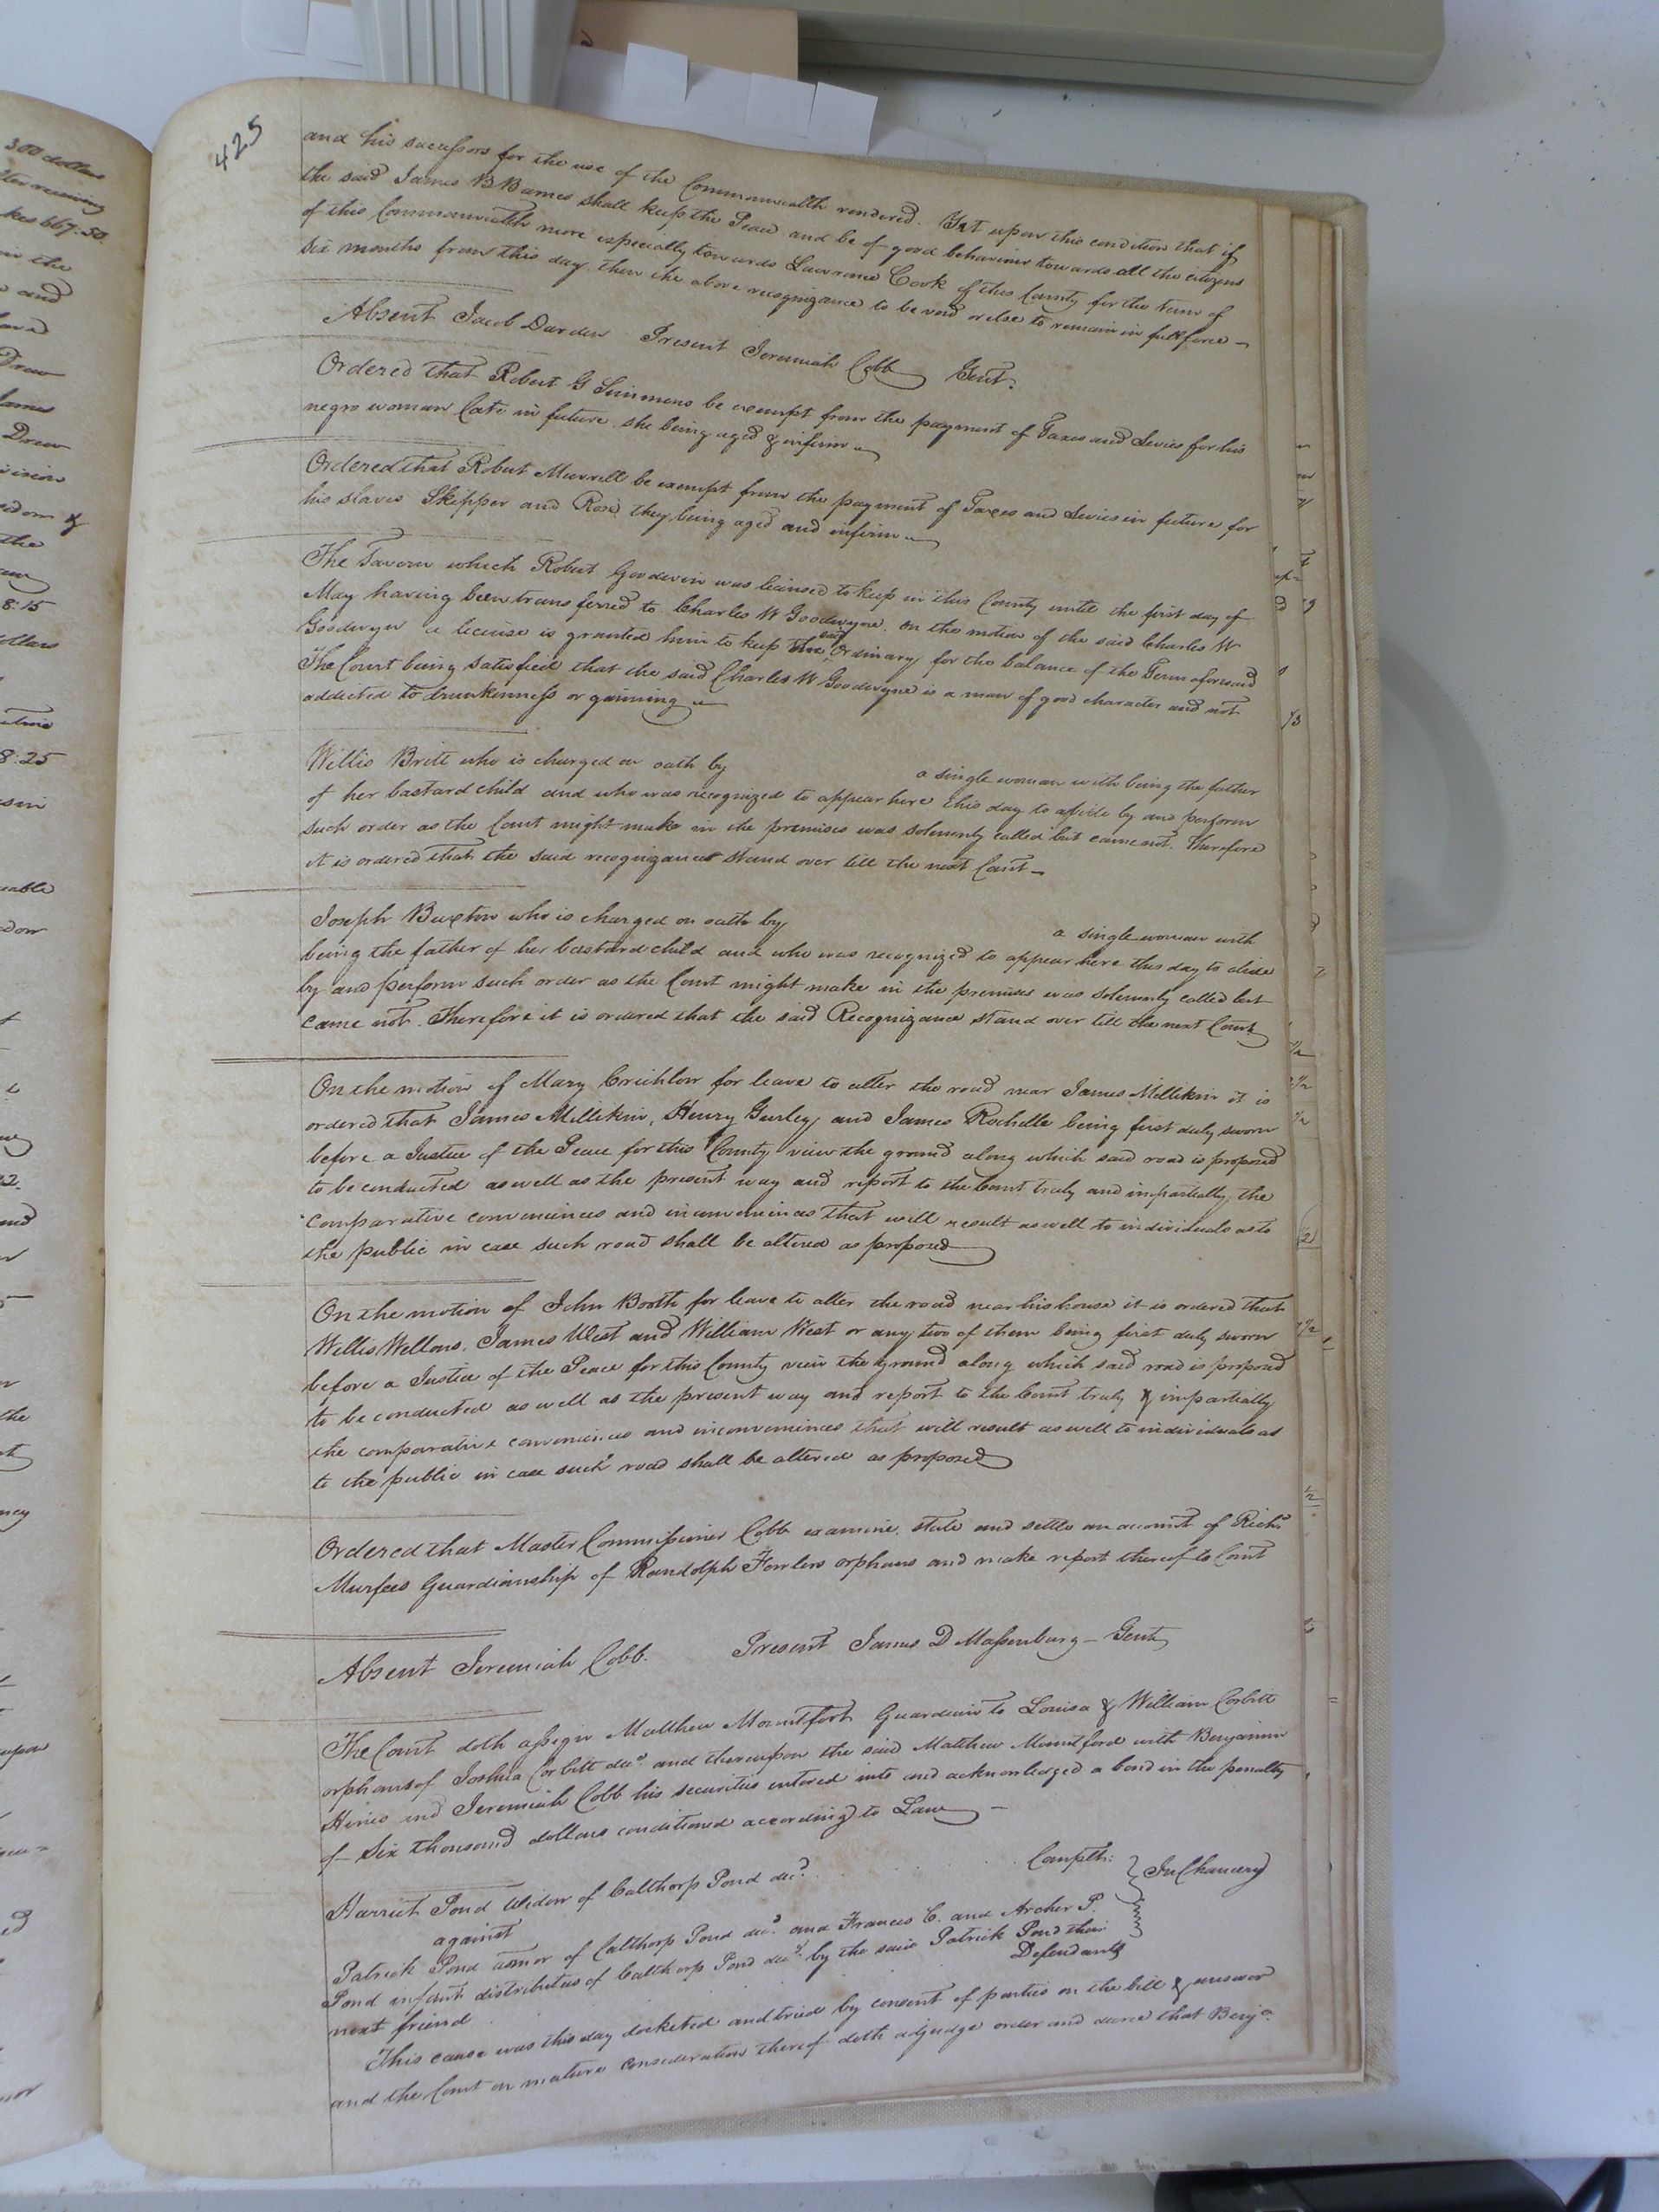 425
and his successors for the use of the Commonwealth rendered. Yet upon this condition that if
the said James B Barnes shall keep the Peace and be of good behaviour towards all the citizens
of this Commonwealth more especially towards Lawrence Cook of this County for the term of
six months from this day, then the above recognizance to be void or else to remain in full force
Absent Jacob Darden Present Jeremiah Cobb Gent:
Ordered that Robert G Simmons be exempt from the payment of Taxes and Levies for his
negro woman Cate in future she being aged & infirm
Ordered that Robert Murrell be exempt from the payment of Taxes and Levies in future for
his slaves Skipper and Rose, they being aged and infirm
The Tavern which Robert Goodwin was licensed to keep in this County until the first day of
May having been transferred to Charles W Goodwyne. On the motion of the said Charles W
Goodwyn a license is granted him to keep the said Ordinary for the balance of the Term aforesaid
The Court being satisfied that the said Charles W Goodwyne is a man of good character and not
addicted to drunkenness or gaming
Willis Britt who is charged on oath by a single woman with being the father
of her bastard child and who was recognized to appear here this day to abide by and perform
such order as the Court might make in the premises was solemnly called but came not. Therefore
it is ordered that the said recognizance stand over till the next Court
Joseph Buxton who is charged on oath by a single woman with
being the father of her bastard child and who was recognized to appear here this day to abide
by and perform such order as the Court might make in the premises was solemnly called but
came not. Therefore it is ordered that the said Recognizance stand over till the next Court
On the motion of Mary Crichlow for leave to alter the road near James Millikin it is
ordered that James Millikin, Henry Gurley and James Rochelle being first duly sworn
before a Justice of the Peace for this County view the ground along which said road is proposed
to be conducted as well as the present way and report to the Court truly and impartially, the
comparative conveniences and inconveniences that will result as well to individuals as to
the public in case such road shall be altered as proposed
On the motion of John Booth for leave to alter the road near his house it is ordered that
Willis Wellons, James West and William West or any two of them being first duly sworn
before a Justice of the Peace for this County view the ground along which said road is proposed
to be conducted as well as the present way and report to the Court truly & impartially
the comparative conveniences and inconveniences that will result as well to individuals as
to the public in case such road shall be altered as proposed
Ordered that Master Commissioner Cobb examine, state and settle an account of Richd
Murfees Guardianship of Randolph Fowlers orphans and make report thereof to Court
Absent Jeremiah Cobb. Present James D Massenburg - Gent
The Court doth assign Matthew Mountfort Guardian to Louisa & William Corbitt
orphans of Joshua Corbitt decd. and thereupon the said Matthew Mountford with Benjamin
Hines and Jeremiah Cobb his securities entered into and acknowledged a bond in the penalty
of Six thousand dollars conditioned according to Law
Harriet Pond Widow of Calthorp Pond decd. Complt: } In Chancery
against
Patrick Pond admor of Calthorp Pond decd. and Frances C. and Archer P.
Pond infant distributees of Calthorp Pond decd. by the said Patrick Pond their
next friend Defendants
This cause was this day docketed and tried by consent of parties on the bill & answer
and the Court on mature consideration thereof doth adjudge order and decree that Benja.